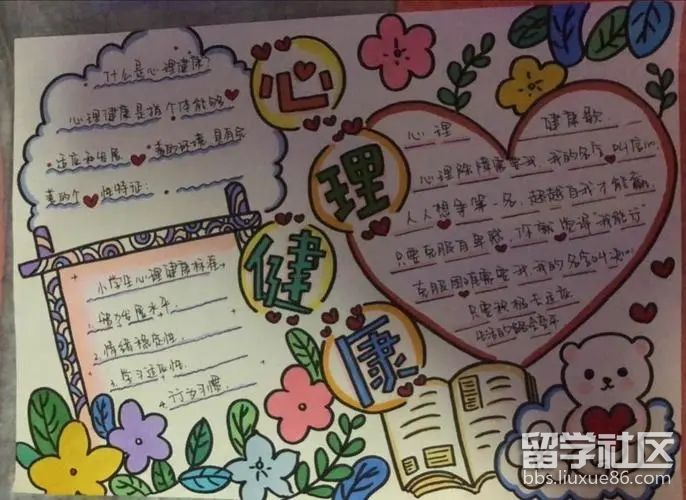 心理健康
什么是心理健康?
心理健康是指个体能够
适应和发展 的环境 具有完
美的个 性特征:
小学生心理健康标准
1.智力发展水平
2.情绪稳定性
3.学习适应性
4.行为习惯
心理 健康歌
心理除障需要我,我的名字叫信心
人人想争第一名,超越自我才能赢
只要克服自卑感,你就说"我能行"
克服困难需要我,我的名字叫
只要积极去适应
生活的路会
留学社区
bbs.liuxue86.com